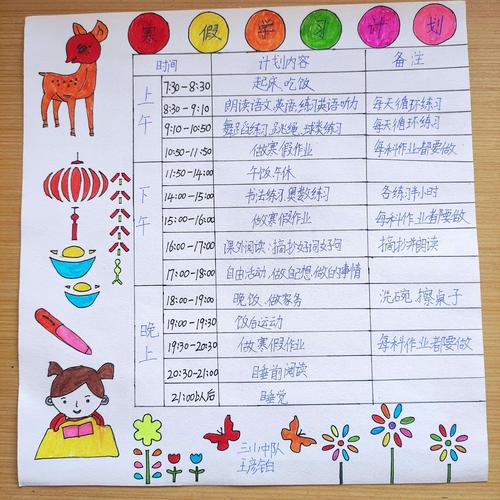 寒假学习计划
时间 计划内容 备注
上午
7:30-8:30 起床、吃饭
8:30-9:10 朗读语文、英语、练习英语听力 每天循环练习
9:10-10:50 舞蹈练习、跳绳、球类练习 每天循环练习
10:50-11:50 做寒假作业 每科作业都要做
下午
11:50-14:00 午饭、午休
14:00-15:00 书法练习、奥数练习 各练习半小时
15:00-16:00 做寒假作业 每科作业都要做
16:00-17:00 课外阅读、摘抄好词好句 摘抄、朗读
17:00-18:00 自由活动、做自己想做的事情
晚上
18:00-19:00 晚饭、做家务 洗碗、擦桌子
19:00-19:30 饭后运动
19:30-20:30 做寒假作业 每科作业都要做
20:30-21:00 睡前阅读
21:00以后 睡觉
三小中队